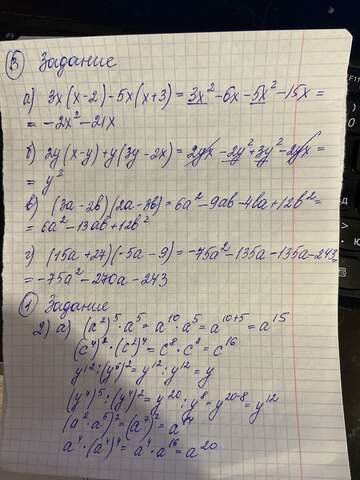 ③ Задание
а) 3x(x-2)-5x(x+3)=3x²-6x-5x²-15x=
=-2x²-21x
б) 2y(x-y)+y(3y-2x)=2yx-2y²+3y²-2yx=
=y²
в) (3a-2b)(2a-3b)=6a²-9ab-4ba+12b²=
=6a²-13ab+12b²
г) (15a+27)(-5a-9)=-75a²-135a-135a-243=
=-75a²-270a-243
① Задание
2) а) (a²)⁵·a⁵=a¹⁰·a⁵=a¹⁰⁺⁵=a¹⁵
(c⁴)²·(c²)⁴=c⁸·c⁸=c¹⁶
y¹²:(y⁶)²=y¹²:y¹²=y
(y⁴)⁵:(y⁴)²=y²⁰:y⁸=y²⁰⁻⁸=y¹²
(a²·a⁵)²=(a⁷)²=a¹⁴
a⁴·(a⁴)⁴=a⁴·a¹⁶=a²⁰